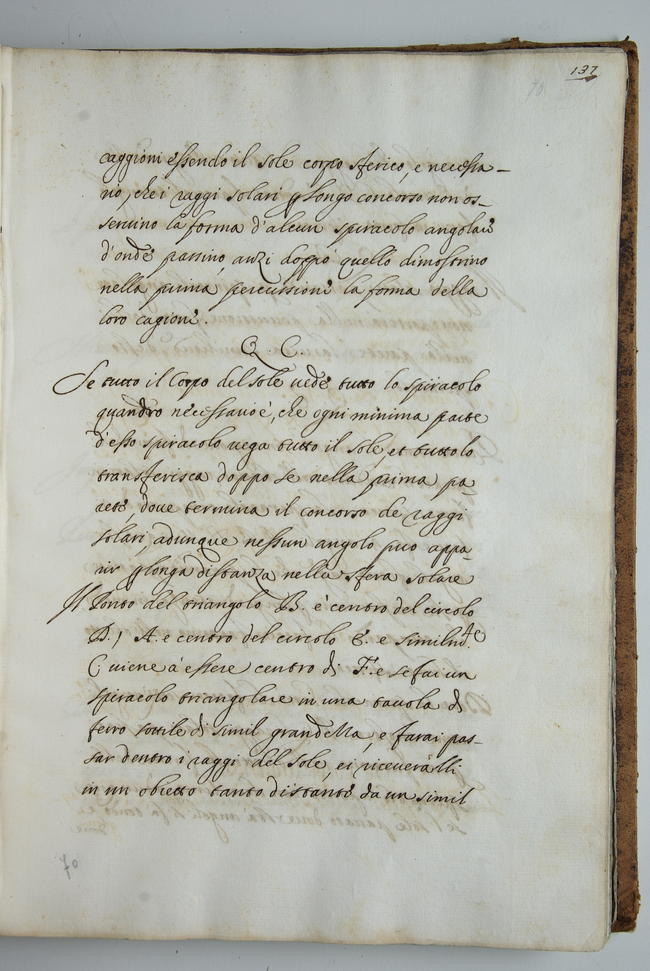 137
70
caggioni essendo il sole corpo sferico, e necessa-
rio, che i raggi solari p longo concorso non os-
seruino la forma d'alcun spiracolo angolare
d'onde passino, anzi doppo quello dimostrino
nella prima percussione la forma della
loro cagione.
Q. C.
Se tutto il Corpo del sole uede tutto lo spiracolo
quandro necessario è, che ogni minima parte
d'esso spiracolo uega tutto il sole, et tutto lo
transferisca doppo se nella prima pa-
rete, doue termina il concorso de raggi
solari, adunque nessun angolo puo appa-
rir p longa distanza nella sfera solare
Il Tondo del triangolo B. è centro del circolo
D., A. e centro del circolo E. e similmte
C uiene à essere centro di F. e se fai un
spiracolo triangolare in una tauola di
ferro sottile di simil grandezza, e farai pas-
sar dentro i raggi del sole, ei riceueralli
in un obietto tanto distante da un simil
70